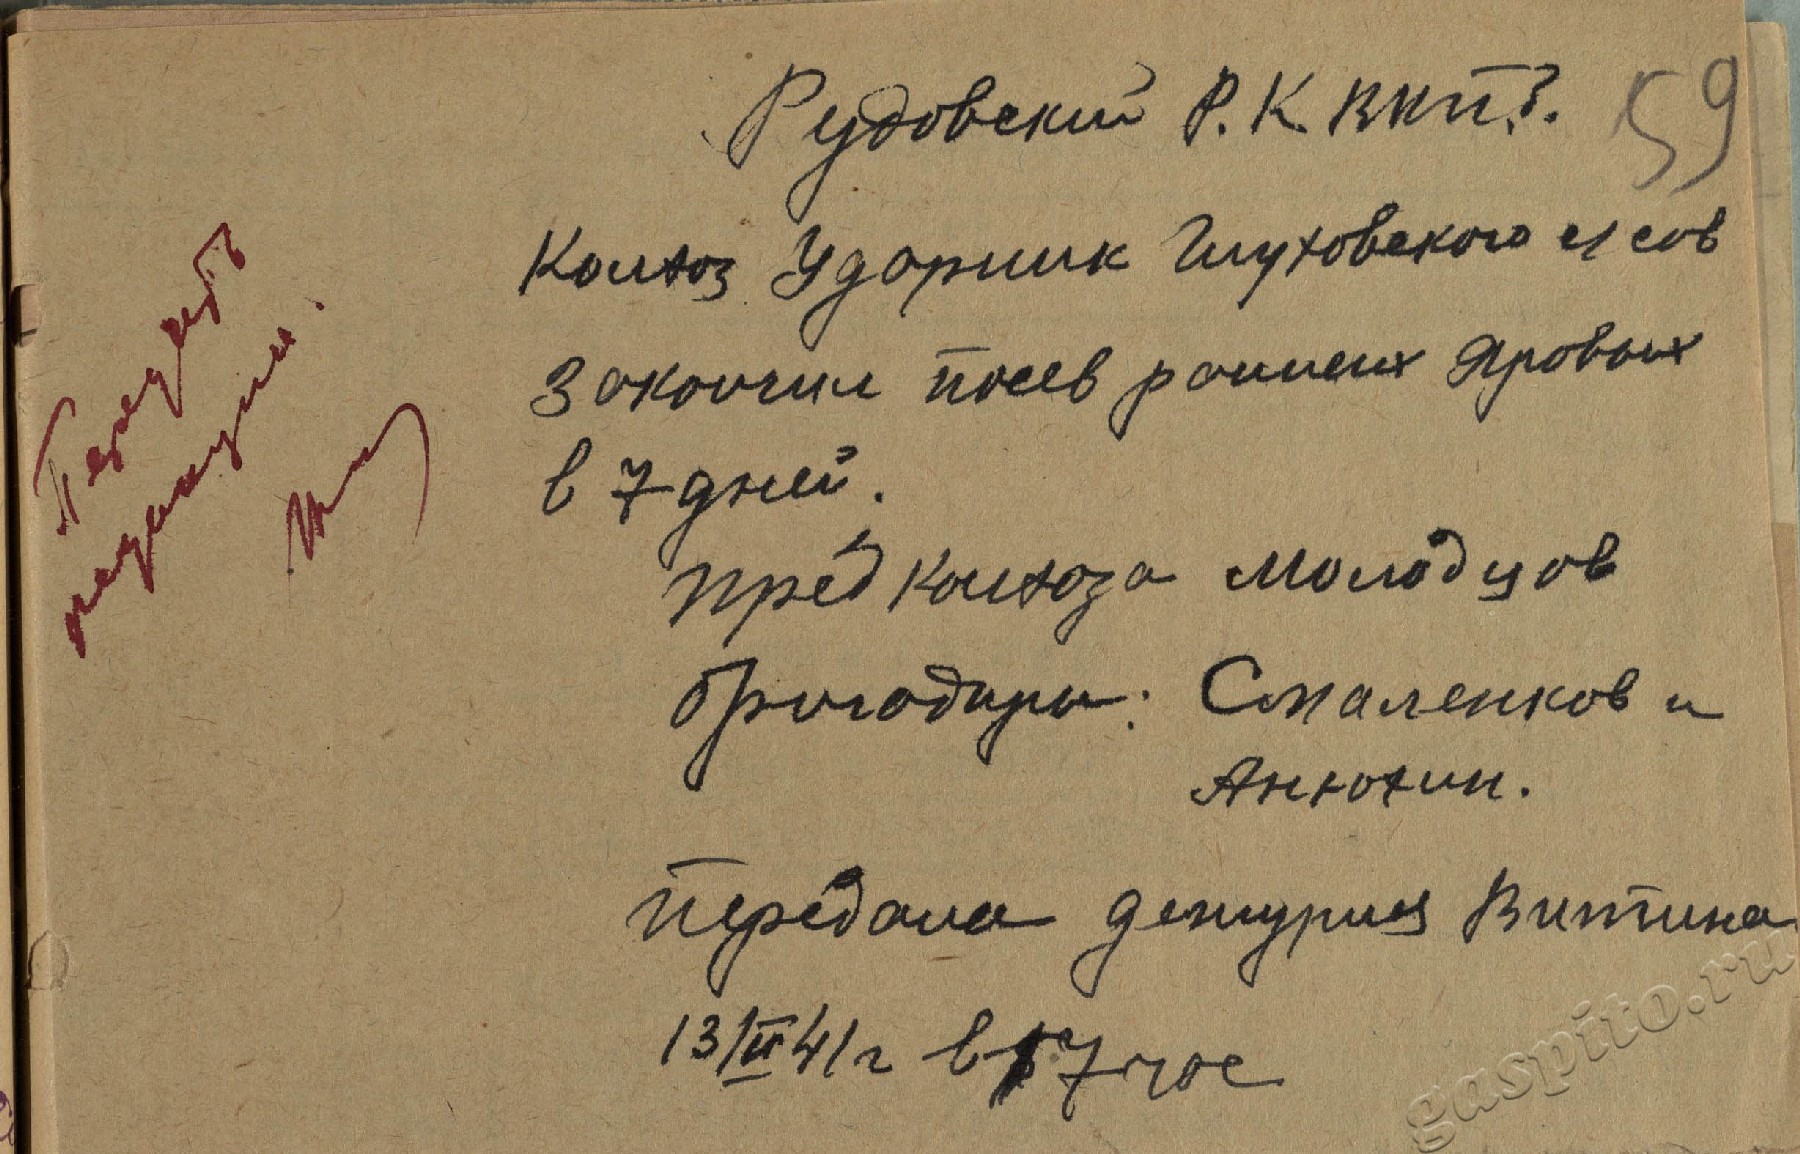 Рудовский Р.К ВКПб.
59
Колхоз Ударник Глуховского с/сов
закончил посев ранних яровых
в 7 дней.
Пред колхоза Молодцов
бригадиры: Смаленков и
Анюхин.
Передала дежурищ Витина
13/II 41 г в 17 час
Передать
редакции.
gaspito.ru